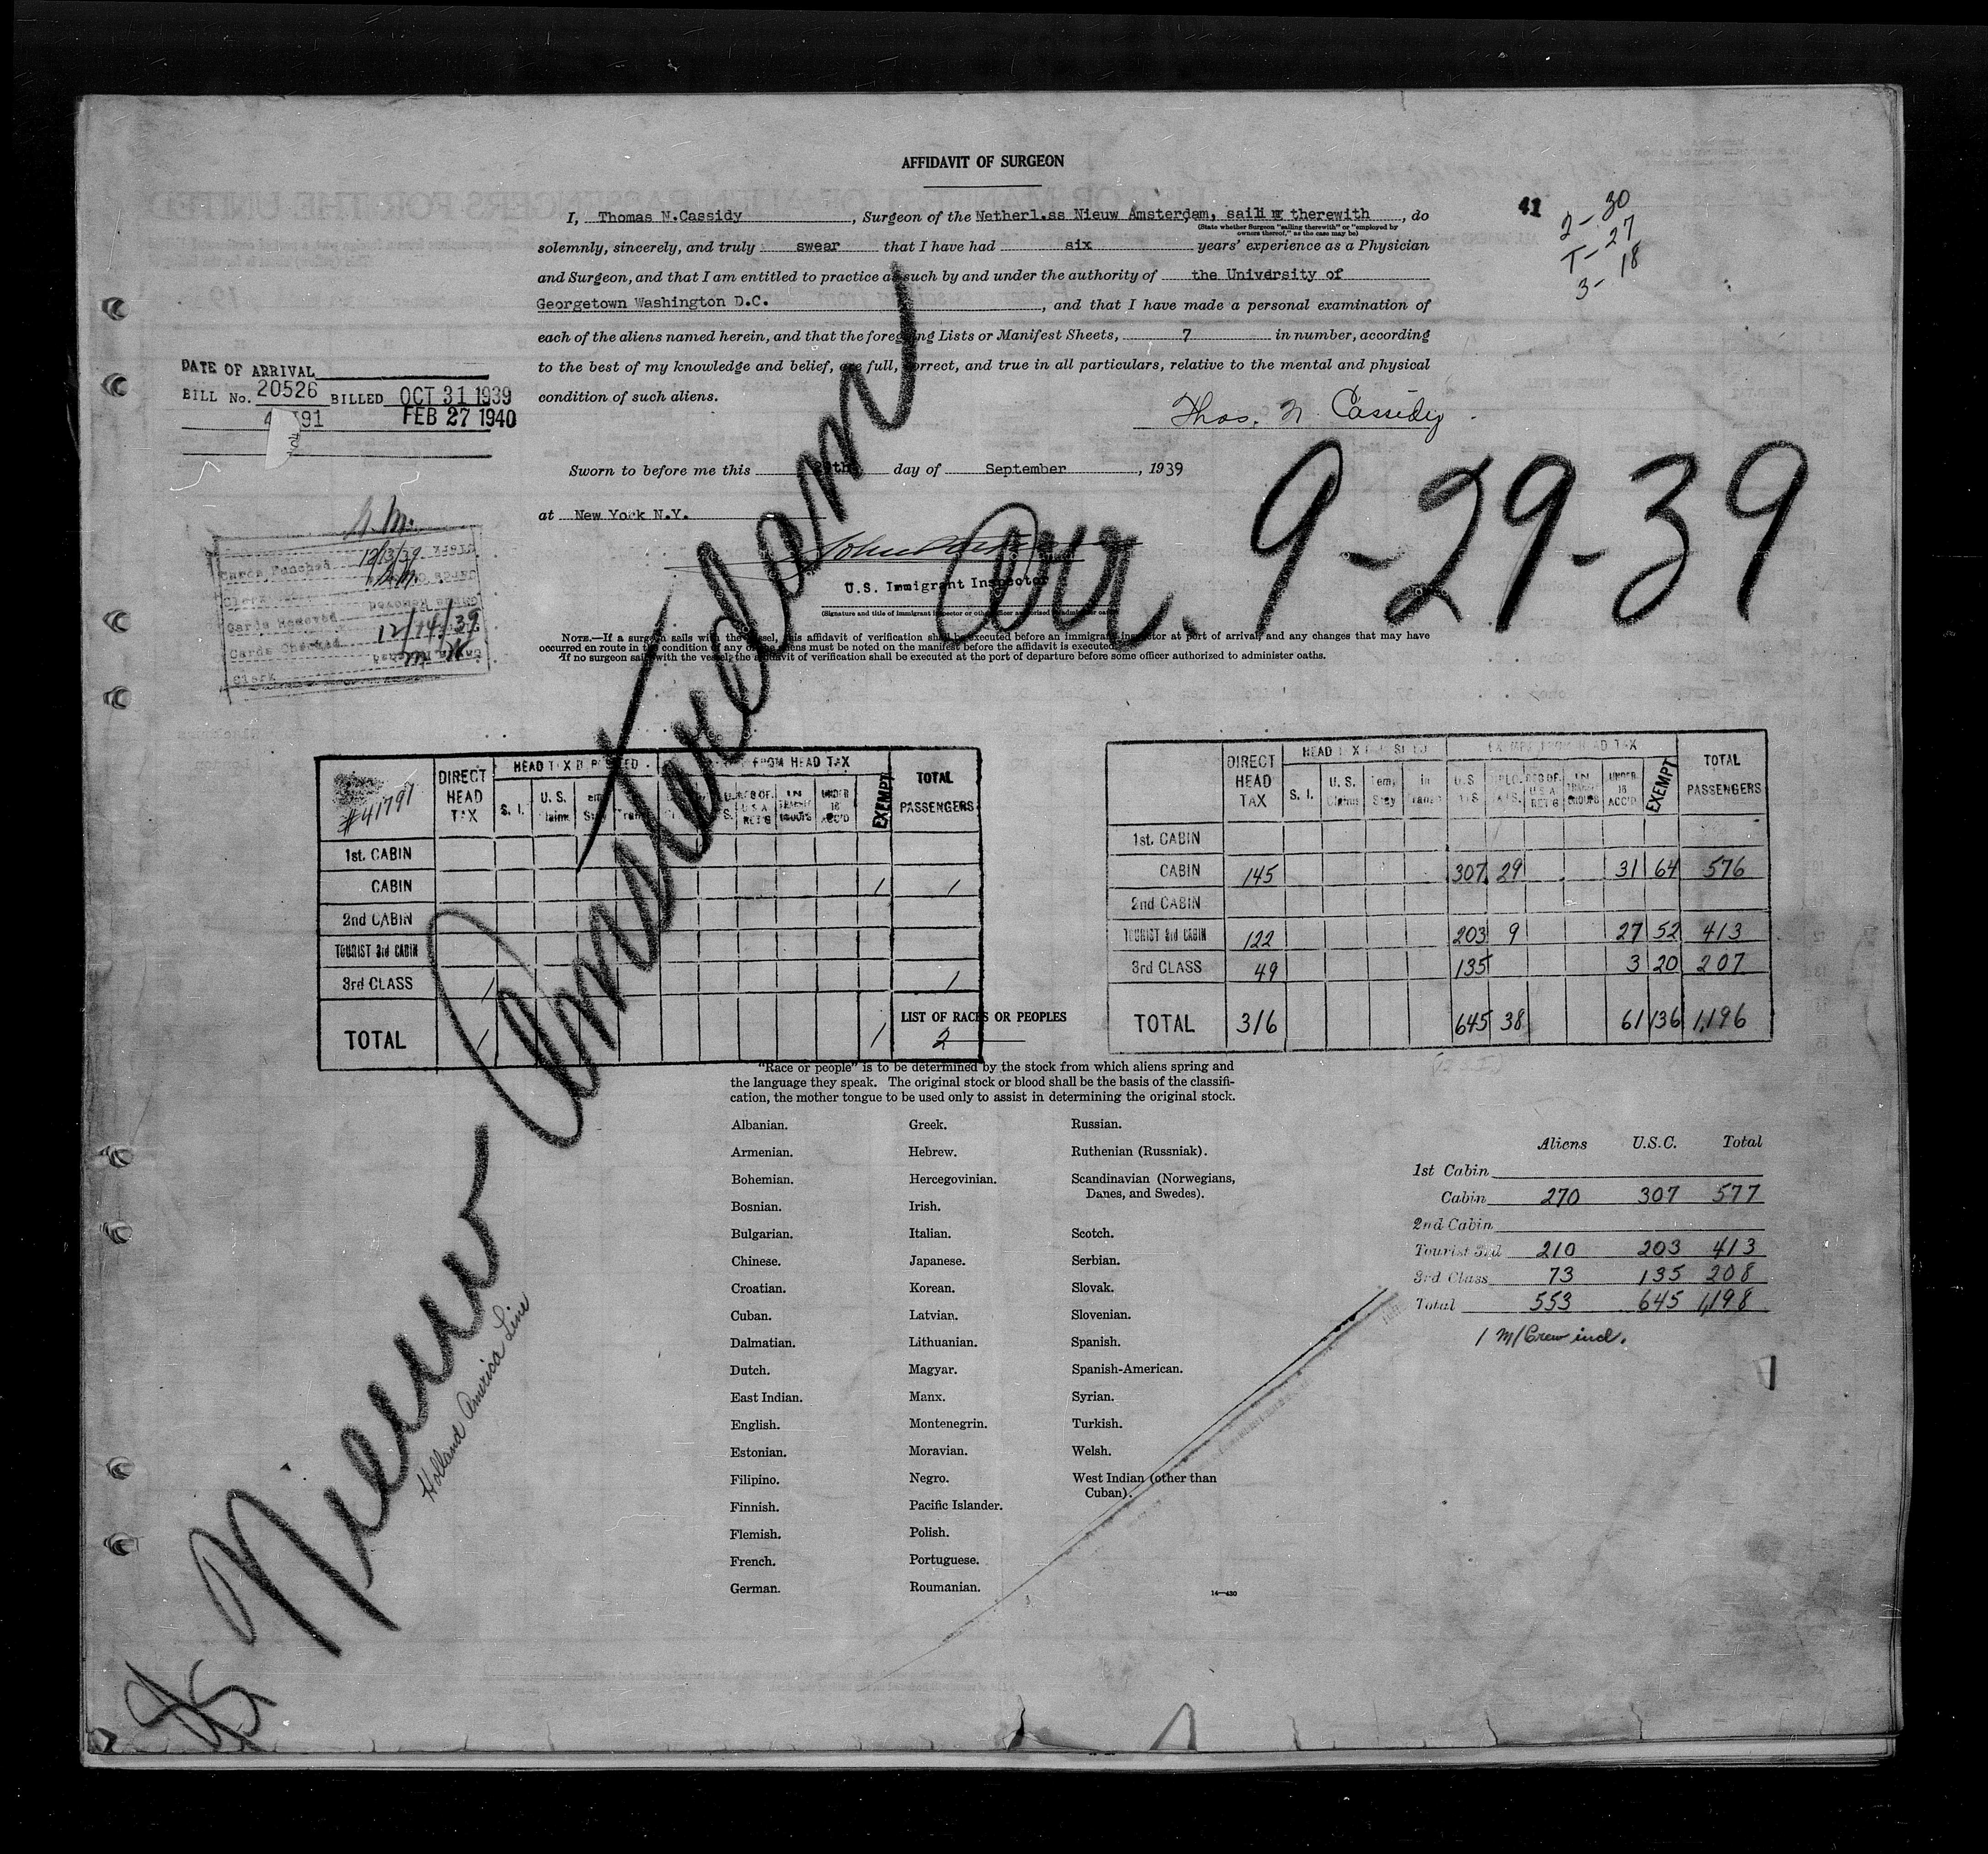 AFFIDAVIT OF SURGEON
I, Thomas N.Cassidy, Surgeon of the Netherl.ss Nieuw Amsterdam, sailing therewith, do
(State whether Surgeon "sailing therewith" or "employed by
owners thereof," as the case may be)
solemnly, sincerely, and truly swear that I have had six years' experience as a Physician
and Surgeon, and that I am entitled to practice as such by and under the authority of the University of
Georgetown Washington D.C., and that I have made a personal examination of
each of the aliens named herein, and that the foregoing Lists or Manifest Sheets, 7 in number, according
to the best of my knowledge and belief, are full, correct, and true in all particulars, relative to the mental and physical
condition of such aliens.
Thos. N. Cassidy
41
2- 30
T- 27
3- 18
DATE OF ARRIVAL
BILL No. 20526 BILLED OCT 31 1939
FEB 27 1940
Sworn to before me this 29th day of September, 1939
at New York N.Y.
U.S. Immigrant Inspector
(Signature and title of immigrant inspector or other officer authorized to administer oaths)
Arr. 9-29-39
NOTE.—If a surgeon sails with the vessel, this affidavit of verification shall be executed before an immigrant inspector at port of arrival, and any changes that may have
occurred en route in the condition of any of the aliens must be noted on the manifest before the affidavit is executed.
If no surgeon sails with the vessel, the affidavit of verification shall be executed at the port of departure before some officer authorized to administer oaths.
Cards Punched 12/13/39
Clerk
Cards Removed
Cards Checked 12/14/39
Clerk
Nieuw Amsterdam
Holland America Line
#41791
DIRECT HEAD TAX HEAD TAX DEPOSITED EXEMPT FROM HEAD TAX TOTAL PASSENGERS
S. I. U. S. Claims EXEMPT
1st. CABIN
CABIN 1 1
2nd CABIN
TOURIST 3rd CABIN
3rd CLASS 1 1
TOTAL 1 1 2
DIRECT HEAD TAX HEAD TAX DEPOSITED EXEMPT FROM HEAD TAX TOTAL PASSENGERS
S. I. U. S. Claims Tem. Stay In Trans. UNDER 16 ACC'D EXEMPT
1st. CABIN
CABIN 145 307 29 31 64 576
2nd CABIN
TOURIST 3rd CABIN 122 203 9 27 52 413
3rd CLASS 49 135 3 20 207
TOTAL 316 645 38 61 136 1,196
LIST OF RACES OR PEOPLES
"Race or people" is to be determined by the stock from which aliens spring and
the language they speak. The original stock or blood shall be the basis of the classifi-
cation, the mother tongue to be used only to assist in determining the original stock.
Albanian.
Armenian.
Bohemian.
Bosnian.
Bulgarian.
Chinese.
Croatian.
Cuban.
Dalmatian.
Dutch.
East Indian.
English.
Estonian.
Filipino.
Finnish.
Flemish.
French.
German.
Greek.
Hebrew.
Hercegovinian.
Irish.
Italian.
Japanese.
Korean.
Latvian.
Lithuanian.
Magyar.
Manx.
Montenegrin.
Moravian.
Negro.
Pacific Islander.
Polish.
Portuguese.
Roumanian.
Russian.
Ruthenian (Russniak).
Scandinavian (Norwegians,
Danes, and Swedes).
Scotch.
Serbian.
Slovak.
Slovenian.
Spanish.
Spanish-American.
Syrian.
Turkish.
Welsh.
West Indian (other than
Cuban).
14—430
Aliens U.S.C. Total
1st Cabin
Cabin 270 307 577
2nd Cabin
Tourist 3rd 210 203 413
3rd Class 73 135 208
Total 553 645 1,198
1 M/Crew incl.